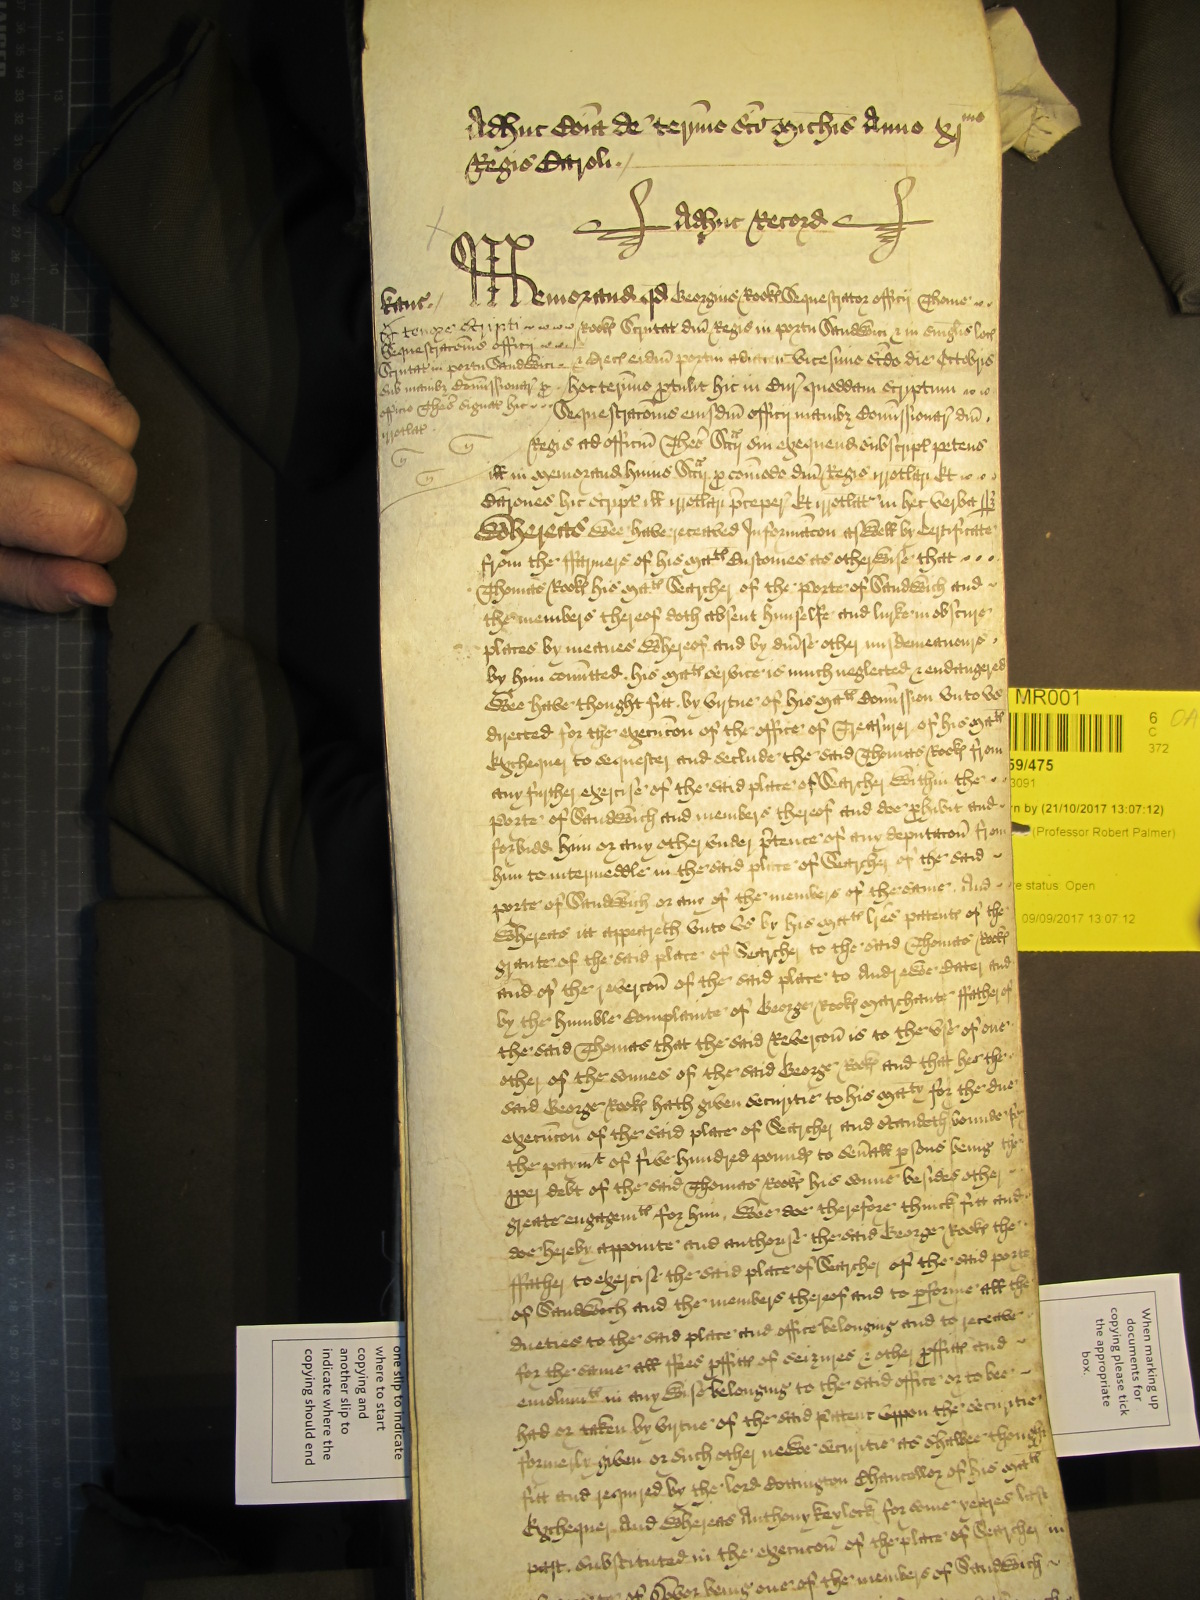 Adhuc Coĩa de termino Sci Michis Anno xjmo
Regis Caroli
Adhuc Record
Kanc
Memorand qd Georgius Rooke Sequestrator officij Thome
Rooke Scrutat dni Regis in portu Sandwici & in singlis loc
& Crecis eidm portui adiacen vicesimo scdo die Octobris
hoc termino ptulit hic in Cur quoddam scriptum
Sequestraconis eiusdm officij manibz Comissionar dni
Regis ad officiu Thes Sccij sui exequend subscript petens
ill in memorand huius Sccij p comodo dni Regis irrotlari Et
Barones hic script ill irrotlari preceper Et irrotlat in hec verba
de scripti
Sequestraconis officij
Scrutat in portu Sandwici
sub manibz Comissionar p
officio Thes signat hic
irrotlat
Whereas Wee have receaved Informacon aswell by Certificate
from the ffarmers of his Mats Customes as otherwise that
Thomas Rooke his Mats Searcher of the porte of Sandwich and
the members thereof doth absent himselfe and lurke in obscure
places by meanes whereof and by divse other misdemeanours
by him comitted his Mats service is much neglected & endangered
Wee have thought fitt by virtue of his Mats Comission unto us
directed for the execucon of the office of Treasurer of his Mats
Exchequer to sequester and seclude the said Thomas Rooke from
any further exercise of the said place of Searcher within the
porte of Sandwich and members thereof and doe phibit and
forbidd him or any other under ptence of any deputacon from
him to intermeddle in the said place of Searcher of the said
porte of Sandwich or any of the members of the same. And
Whereas itt appeareth unto us by his Mats lres patents of the
graunte of the said place of Searcher to the said Thomas Rooke
and of the revercon of the said place to Andrewe and
by the humble Complainte of George Rooke Marchante ffather of
the said Thomas that the said Revercon is to the use of one
other of the sonnes of the said George Rooke and that hee the
said George Rooke hath given securitie to his Maty for the due
execucon of the said place of Searcher and standeth bounde for
the paymt of five hundred pounds to sevall psons being the
pper debt of the said Thomas Rooke his sonne besides other
greate engagemts for him. Wee doe therefore thinck fitt and
doe hereby appointe and authorise the said George Rooke the
ffather to exercise the said place of Searcher of the said porte
of Sandwch and the members thereof and to pforme all the
dueties to the said place and office belonging and to receave
for the same all ffees pffitts of seizures & other pffitts and
emolumts in any wise belonging to the said office or to bee
had or taken by virtue of the said Patent uppon the securitie
formerly given or such other newe securitie as shalbee thought
fitt and required by the lord Cottington Chancellor of his Mats
Exchequer. And Whereas Anthony Keylock for some yeares last
past substituted in the execucon of the place of Searcher in
of Dovor being one of the members of Sandwich
MR001
6
C
372
59/475
3091
rn by (21/10/2017 13:07:12)
(Professor Robert Palmer)
re status Open
09/09/2017 13:07:12
one slip to indicate
where to start
copying and
another slip to
indicate where the
copying should end
When marking up
documents for
copying please tick
the appropriate
box.